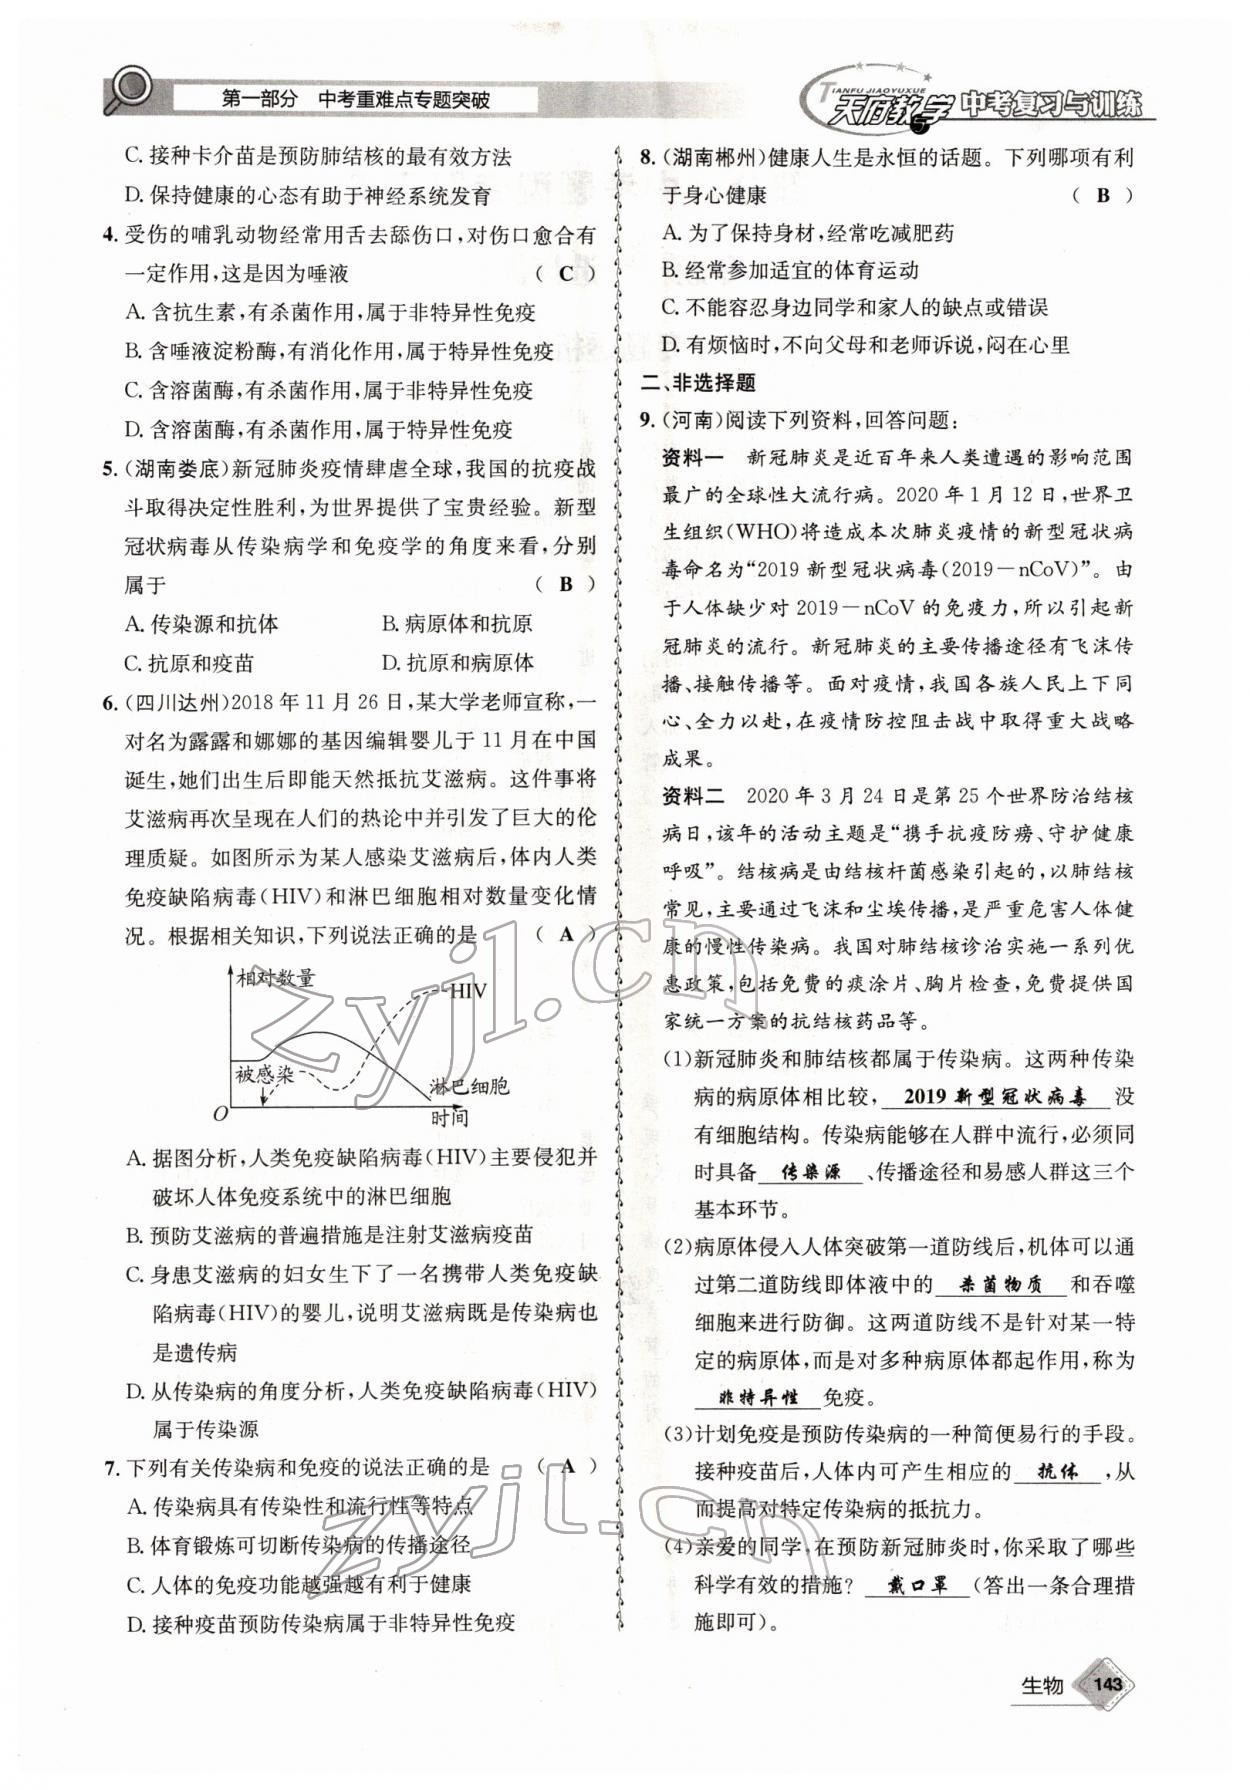 第一部分 中考重难点专题突破
TIANFU JIAOYUXUE
天府教与学 中考复习与训练
C. 接种卡介苗是预防肺结核的最有效方法
D. 保持健康的心态有助于神经系统发育
4. 受伤的哺乳动物经常用舌去舔伤口，对伤口愈合有
一定作用，这是因为唾液 （ C ）
A. 含抗生素，有杀菌作用，属于非特异性免疫
B. 含唾液淀粉酶，有消化作用，属于特异性免疫
C. 含溶菌酶，有杀菌作用，属于非特异性免疫
D. 含溶菌酶，有杀菌作用，属于特异性免疫
5. （湖南娄底）新冠肺炎疫情肆虐全球，我国的抗疫战
斗取得决定性胜利，为世界提供了宝贵经验。新型
冠状病毒从传染病学和免疫学的角度来看，分别
属于 （ B ）
A. 传染源和抗体 B. 病原体和抗原
C. 抗原和疫苗 D. 抗原和病原体
6. （四川达州）2018 年 11 月 26 日，某大学老师宣称，一
对名为露露和娜娜的基因编辑婴儿于 11 月在中国
诞生，她们出生后即能天然抵抗艾滋病。这件事将
艾滋病再次呈现在人们的热论中并引发了巨大的伦
理质疑。如图所示为某人感染艾滋病后，体内人类
免疫缺陷病毒（HIV）和淋巴细胞相对数量变化情
况。根据相关知识，下列说法正确的是 （ A ）
相对数量
HIV
被感染
淋巴细胞
O
时间
A. 据图分析，人类免疫缺陷病毒（HIV）主要侵犯并
破坏人体免疫系统中的淋巴细胞
B. 预防艾滋病的普遍措施是注射艾滋病疫苗
C. 身患艾滋病的妇女生下了一名携带人类免疫缺
陷病毒（HIV）的婴儿，说明艾滋病既是传染病也
是遗传病
D. 从传染病的角度分析，人类免疫缺陷病毒（HIV）
属于传染源
7. 下列有关传染病和免疫的说法正确的是 （ A ）
A. 传染病具有传染性和流行性等特点
B. 体育锻炼可切断传染病的传播途径
C. 人体的免疫功能越强越有利于健康
D. 接种疫苗预防传染病属于非特异性免疫
8. （湖南郴州）健康人生是永恒的话题。下列哪项有利
于身心健康 （ B ）
A. 为了保持身材，经常吃减肥药
B. 经常参加适宜的体育运动
C. 不能容忍身边同学和家人的缺点或错误
D. 有烦恼时，不向父母和老师诉说，闷在心里
二、非选择题
9. （河南）阅读下列资料，回答问题：
资料一 新冠肺炎是近百年来人类遭遇的影响范围
最广的全球性大流行病。2020 年 1 月 12 日，世界卫
生组织(WHO)将造成本次肺炎疫情的新型冠状病
毒命名为“2019 新型冠状病毒(2019－nCoV)”。由
于人体缺少对 2019－nCoV 的免疫力，所以引起新
冠肺炎的流行。新冠肺炎的主要传播途径有飞沫传
播、接触传播等。面对疫情，我国各族人民上下同
心、全力以赴，在疫情防控阻击战中取得重大战略
成果。
资料二 2020 年 3 月 24 日是第 25 个世界防治结核
病日，该年的活动主题是“携手抗疫防痨、守护健康
呼吸”。结核病是由结核杆菌感染引起的，以肺结核
常见，主要通过飞沫和尘埃传播，是严重危害人体健
康的慢性传染病。我国对肺结核诊治实施一系列优
惠政策，包括免费的痰涂片、胸片检查，免费提供国
家统一方案的抗结核药品等。
(1)新冠肺炎和肺结核都属于传染病。这两种传染
病的病原体相比较， 2019 新型冠状病毒 没
有细胞结构。传染病能够在人群中流行，必须同
时具备 传染源 、传播途径和易感人群这三个
基本环节。
(2)病原体侵入人体突破第一道防线后，机体可以通
过第二道防线即体液中的 杀菌物质 和吞噬
细胞来进行防御。这两道防线不是针对某一特
定的病原体，而是对多种病原体都起作用，称为
非特异性 免疫。
(3)计划免疫是预防传染病的一种简便易行的手段。
接种疫苗后，人体内可产生相应的 抗体 ，从
而提高对特定传染病的抵抗力。
(4)亲爱的同学，在预防新冠肺炎时，你采取了哪些
科学有效的措施？ 戴口罩 （答出一条合理措
施即可）。
生物 143
zyjl.cn
zyjl.cn